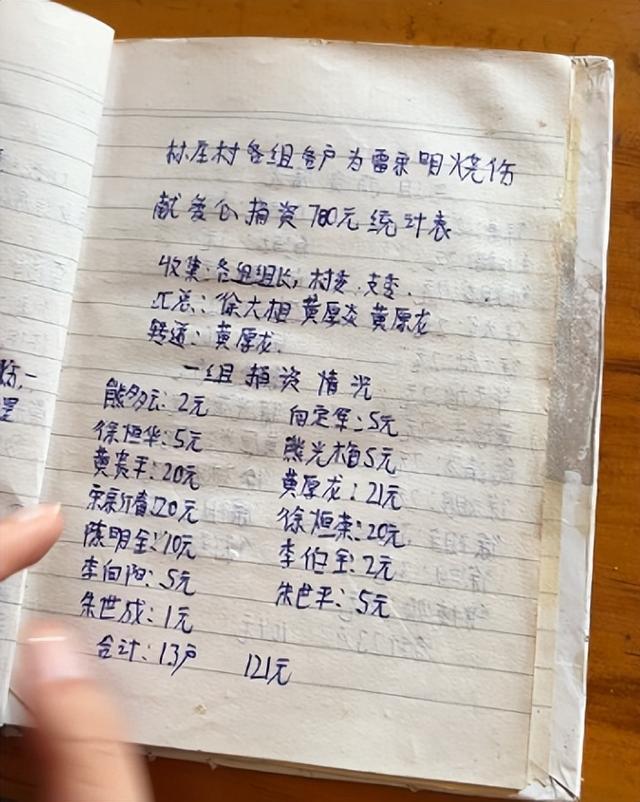 林庄村各组各户为雷承明烧伤
献爱心捐资780元统计表
收集:各组组长,村委.支委.
汇总:徐大相 黄厚炎 黄厚龙
转送:黄厚龙.
一组捐资情况
熊多云:2元 向定军:5元
徐恒华:5元 熊光梅5元
黄炎平:20元 黄厚龙:21元
宋新春:20元 徐恒荣:20元
陈明金:10元 李伯金:2元
李伯阳:5元 朱世平:5元
朱世成:1元
合计:13户 121元